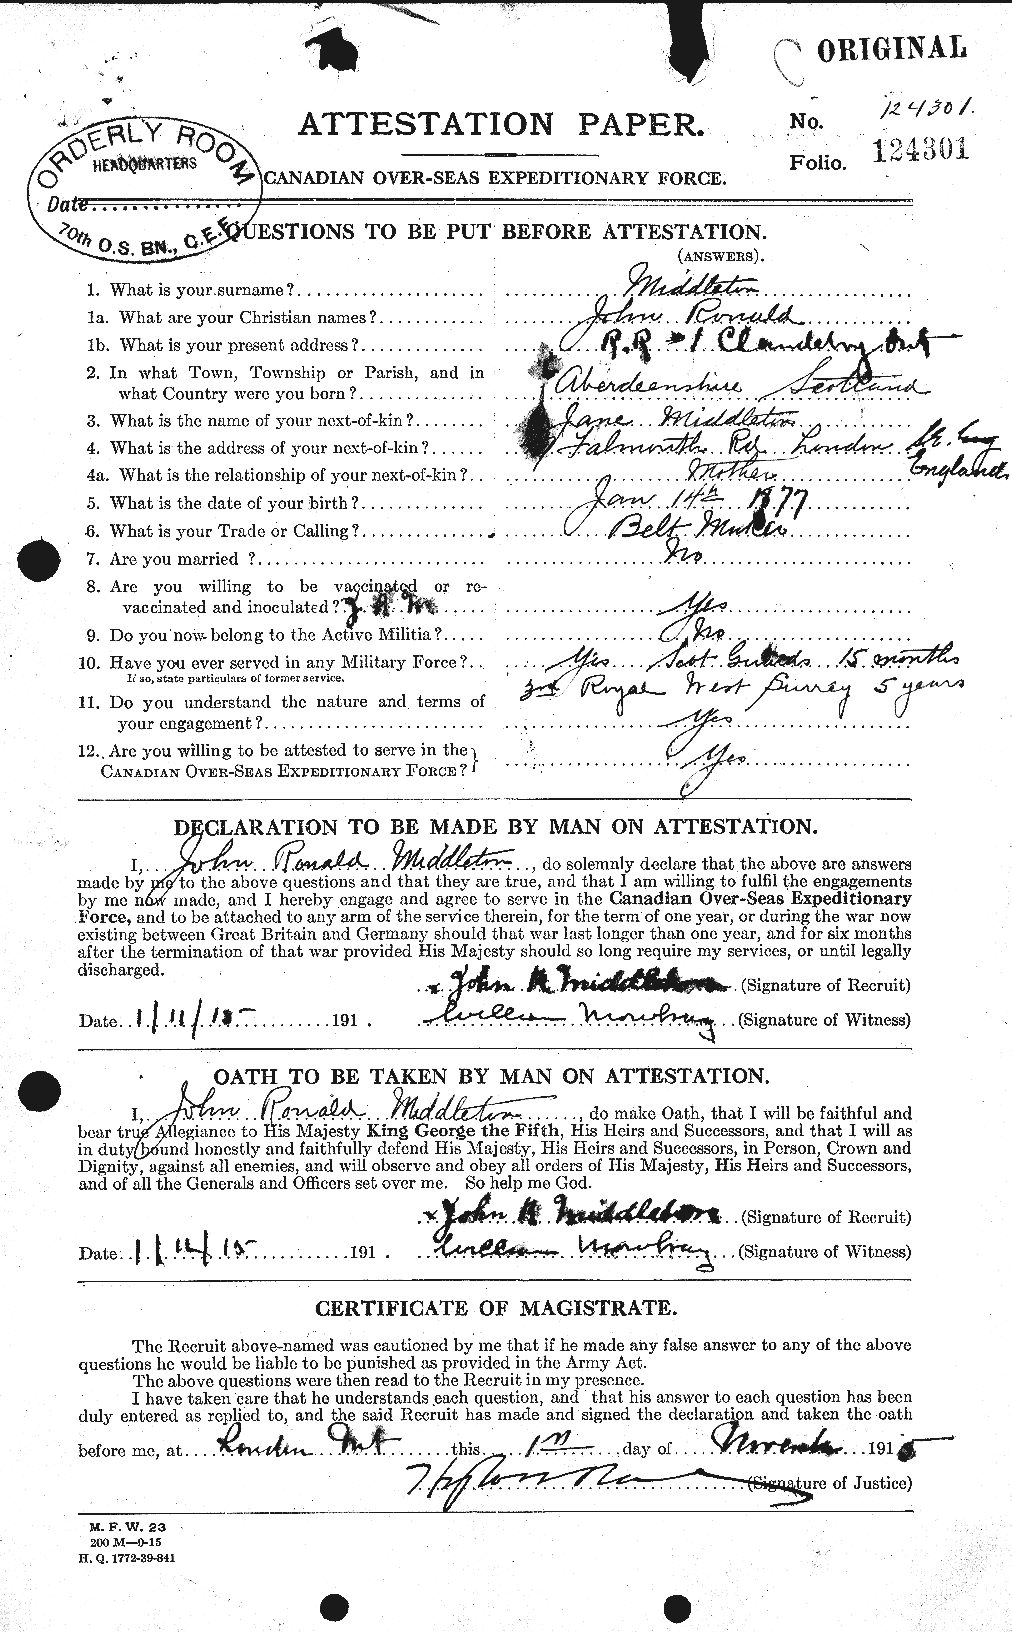 ORIGINAL
ATTESTATION PAPER.
No. 124301.
Folio. 124301
ORDERLY ROOM
HEADQUARTERS
Date
70th O.S. BN., C.E.F.
CANADIAN OVER-SEAS EXPEDITIONARY FORCE.
QUESTIONS TO BE PUT BEFORE ATTESTATION.
(ANSWERS).
1. What is your surname? Middleton
1a. What are your Christian names? John Ronald
1b. What is your present address? R.R #1 Clandeboy, Ont
2. In what Town, Township or Parish, and in
what Country were you born? Aberdeenshire Scotland
3. What is the name of your next-of-kin? Jane Middleton
4. What is the address of your next-of-kin? Falmouth Rd, London SE. Eng
England
4a. What is the relationship of your next-of-kin? Mother
5. What is the date of your birth? Jan 14th 1877
6. What is your Trade or Calling? Belt Maker
7. Are you married ? No
8. Are you willing to be vaccinated or re-
vaccinated and inoculated? J R M Yes
9. Do you now belong to the Active Militia? No
10. Have you ever served in any Military Force? Yes Scot Guards 15 months
If so, state particulars of former service. 3rd Royal West Surrey 5 years
11. Do you understand the nature and terms of
your engagement? Yes
12. Are you willing to be attested to serve in the
CANADIAN OVER-SEAS EXPEDITIONARY FORCE? Yes
DECLARATION TO BE MADE BY MAN ON ATTESTATION.
I, John Ronald Middleton, do solemnly declare that the above are answers
made by me to the above questions and that they are true, and that I am willing to fulfil the engagements
by me now made, and I hereby engage and agree to serve in the Canadian Over-Seas Expeditionary
Force, and to be attached to any arm of the service therein, for the term of one year, or during the war now
existing between Great Britain and Germany should that war last longer than one year, and for six months
after the termination of that war provided His Majesty should so long require my services, or until legally
discharged.
x John R Middleton (Signature of Recruit)
Date 1/11/15 191 . William Mowbray (Signature of Witness)
OATH TO BE TAKEN BY MAN ON ATTESTATION.
I, John Ronald Middleton, do make Oath, that I will be faithful and
bear true Allegiance to His Majesty King George the Fifth, His Heirs and Successors, and that I will as
in duty bound honestly and faithfully defend His Majesty, His Heirs and Successors, in Person, Crown and
Dignity, against all enemies, and will observe and obey all orders of His Majesty, His Heirs and Successors,
and of all the Generals and Officers set over me. So help me God.
x John R Middleton (Signature of Recruit)
Date 1/11/15 191 . William Mowbray (Signature of Witness)
CERTIFICATE OF MAGISTRATE.
The Recruit above-named was cautioned by me that if he made any false answer to any of the above
questions he would be liable to be punished as provided in the Army Act.
The above questions were then read to the Recruit in my presence.
I have taken care that he understands each question, and that his answer to each question has been
duly entered as replied to, and the said Recruit has made and signed the declaration and taken the oath
before me, at London Ont this 1st day of November 1915
(Signature of Justice)
M. F. W. 23
200 M—9-15
H. Q. 1772-39-841